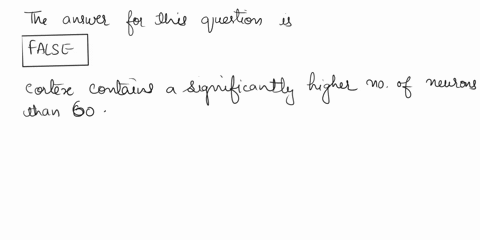 The answer for this question is
FALSE
Cortex contains a significantly higher no. of neurons
than 60.